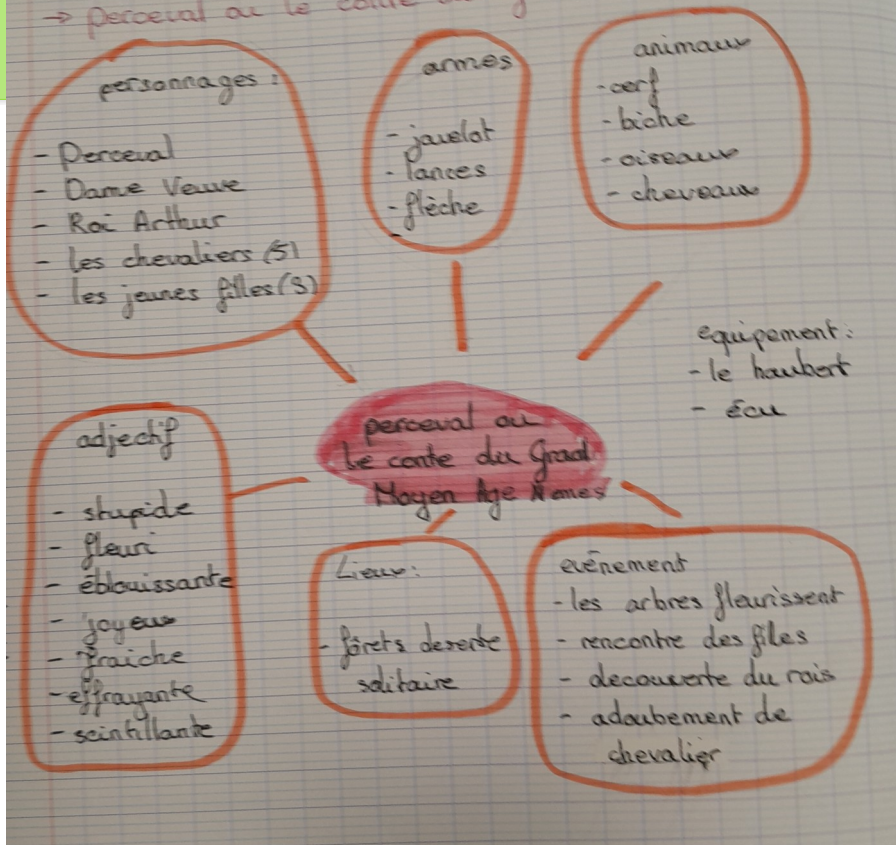 → perceval ou le conte du g
personnages :
- Perceval
- Dame Veuve
- Roi Arthur
- les chevaliers (5)
- les jeunes filles (3)
armes
- javelot
- lances
- flèche
-
animaux
- cerf
- biche
- oiseaux
- cheveaux
equipement :
- le haubert
- Écu
perceval ou
le conte du Graal
Moyen Age
adjectif
- stupide
- fleuri
- éblouissante
- joyeux
- fraiche
- effrayante
- scintillante
Lieux :
- fôrets deserte
solitaire
evênement
- les arbres fleurissent
- rencontre des files
- decouverte du rois
- adoubement de
chevalier